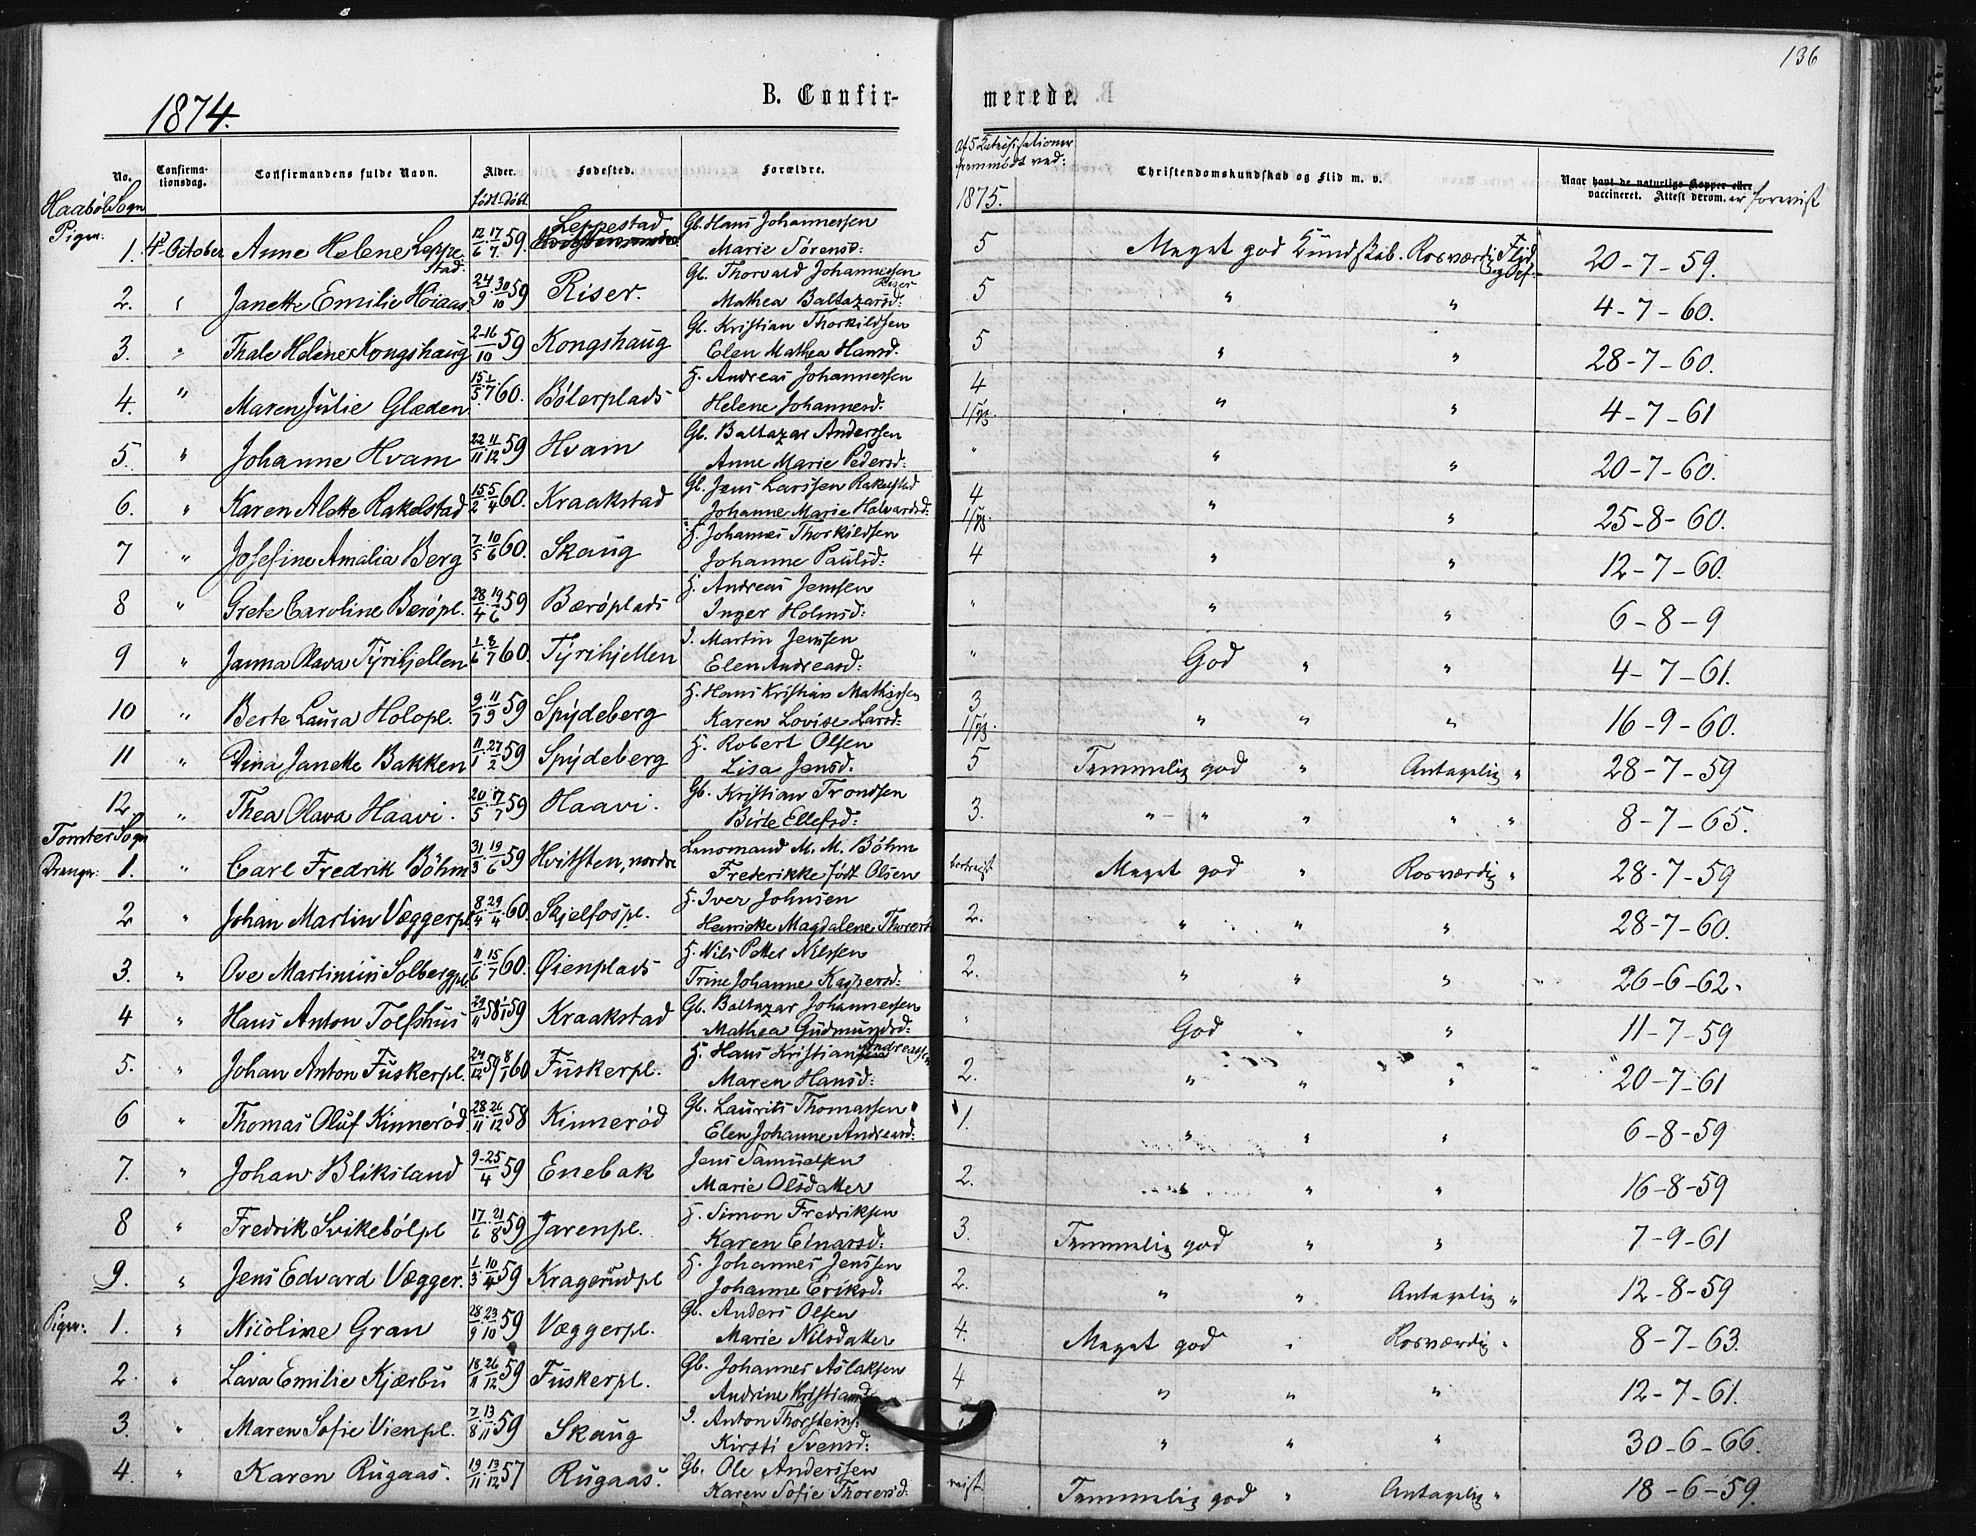 136
1874.
B. Confir-
merede.
No.
Confirma-
tionsdag.
Confirmandens fulde Navn.
Alder.
født. døbt
Fødested.
Forældre.
Af 5 Katekisationer
fremmødt ved:
1875.
Christendomskundskab og Flid m. v.
Naar havt de naturlige Kopper eller
vaccineret. Attest derom. er forevist
Haabøl Sogn
Piger:
1. 4de October Anne Helene Leppestad. 12/6 17/7 59. Leppestad Gb. Hans Johannessen
Marie Sørensd: 5 Meget god Kundskab. Rosværdig Flid og Opf. 20-7-59.
2. " Janette Emilie Høiaas. 24/9 30/10 59 Riser. Gb. Thorvald Johannessen Riser
Mathea Baltazarsd: 5 " " 4-7-60.
3. " Thale Helene Kongshaug 2-16/10 59 Kongshaug Gb. Kristian Thorkildsen
Elen Mathea Hansd. 5 " " 28-7-60.
4. " Maren Julie Glæden 15/5 1/7 60. Bølerplads H. Andreas Johannessen
Helene Johannesd. 4 " " 4-7-61
5. " Johanne Hvam 22/11 11/12 59 Hvam Gb. Baltazar Anderssen
Anne Marie Pedersd: " " " 20-7-60.
6. " Karen Alette Rakelstad 15/2 5/4 60. Kraakstad Gb. Jens Larssen Rakelstad
Johanne Marie Halvardsd: 4 " " 25-8-60.
7 " Josefine Amalia Berg 7/5 10/6 60. Skaug H. Johannes Thorkildsen
Johanne Paulsd: 4 " " 12-7-60.
8 " Grete Caroline Bærøpl. 28/4 19/6 59 Bærøplads H. Andreas Jenssen
Inger Holmsd: " " " 6-8-9
9 " Janna Olava Tyrihjellen 1/6 8/7 60. Tyrihjellen I. Martin Jenssen
Elen Andreasd: " God " " 4-7-61.
10 " Berte Laura Holopl. 9/7 11/9 59 Spydeberg H. Hans Kristian Mathissen
Karen Lovise Larsd: 3 " " " 16-9-60.
11 " Dina Janette Bakken 11/1 27/2 59 Spydeberg H. Robert Olsen
Lisa Jensd. 5 Temmelig god " Antagelig " 28-7-59
12 " Thea Olava Haavi. 20/5 17/7 59 Haavi. Gb. Kristian Trondsen
Birte Ellefsd: 3. " " " " " 8-7-65.
Tomter Sogn
Drenge: 1. " Carl Fredrik Böhm 31/3 19/6 59 Hvitsten, nordre Lensmand M. M. Böhm
Frederikke født Olsen bortreist Meget god " Rosværdig " 28-7-59
2 " Johan Martin Væggerpl. 8/4 29/4 60. Skjelfospl. H. Iver Johnsen
Henrikke Magdalene Thoresd 2. " " " 28-7-60.
3. " Ove Martinius Solbergpl. 11/6 15/7 60. Øienplads H. Nils Petter Nilssen
Trine Johanne Kaspersd: 2. " " " 26-6-62.
4 " Hans Anton Tolfshus 29/11 58 1/1 59 Kraakstad Gb. Baltazar Johannessen
Mathea Gudmundsd: " God " " 11-7-59
5. " Johan Anton Fuskerpl. 24/12 59 8/1 60 Fuskerpl. H. Hans Kristian Andreassen
Maren Hansd: 2. " " " 20-7-61
6 " Thomas Oluf Kinnerød 28/11 26/12 58 Kinnerød Gb. Laurits Thomassen
Elen Johanne Andreasd: 1. " " " 6-8-59
7. " Johan Bliksland 9-25/4 59 Enebak Jens Samuelsen
Marie Olsdatter 2. " " " 16-8-59
8 " Fredrik Svikebølpl 17/6 21/8 59 Jarenpl. H. Simon Fredriksen
Karen Einarsd: 3. Temmelig god " " 7-9-61
9. " Jens Edvard Vægger. 1/3 10/4 59 Kragerudpl H. Johannes Jenssen
Johanne Eriksd: 2. " " Antagelig " 12-8-59
Piger: 1. " Nicoline Gran 28/9 23/10 59 Væggerpl. Gb. Anders Olsen
Marie Nilsdatter 4. Meget god " Rosværdig " 8-7-63.
2. " Lava Emilie Kjærbu 18/11 26/12 59 Fuskerpl. Gb. Johannes Aslaksen
Andrine Kristiansd 4 " " " 12-7-61.
3. " Maren Sofie Vienpl. 7/8 13/11 59 Skaug I. Anton Thorsteins
Kirsti Svensd: " " " 30-6-66.
4. " Karen Rugaas. 19/11 13/12 57 Rugaas. Gb. Ole Anderssen
Karen Sofie Thoresd: reist Temmelig god " Antagelig " 18-6-59.